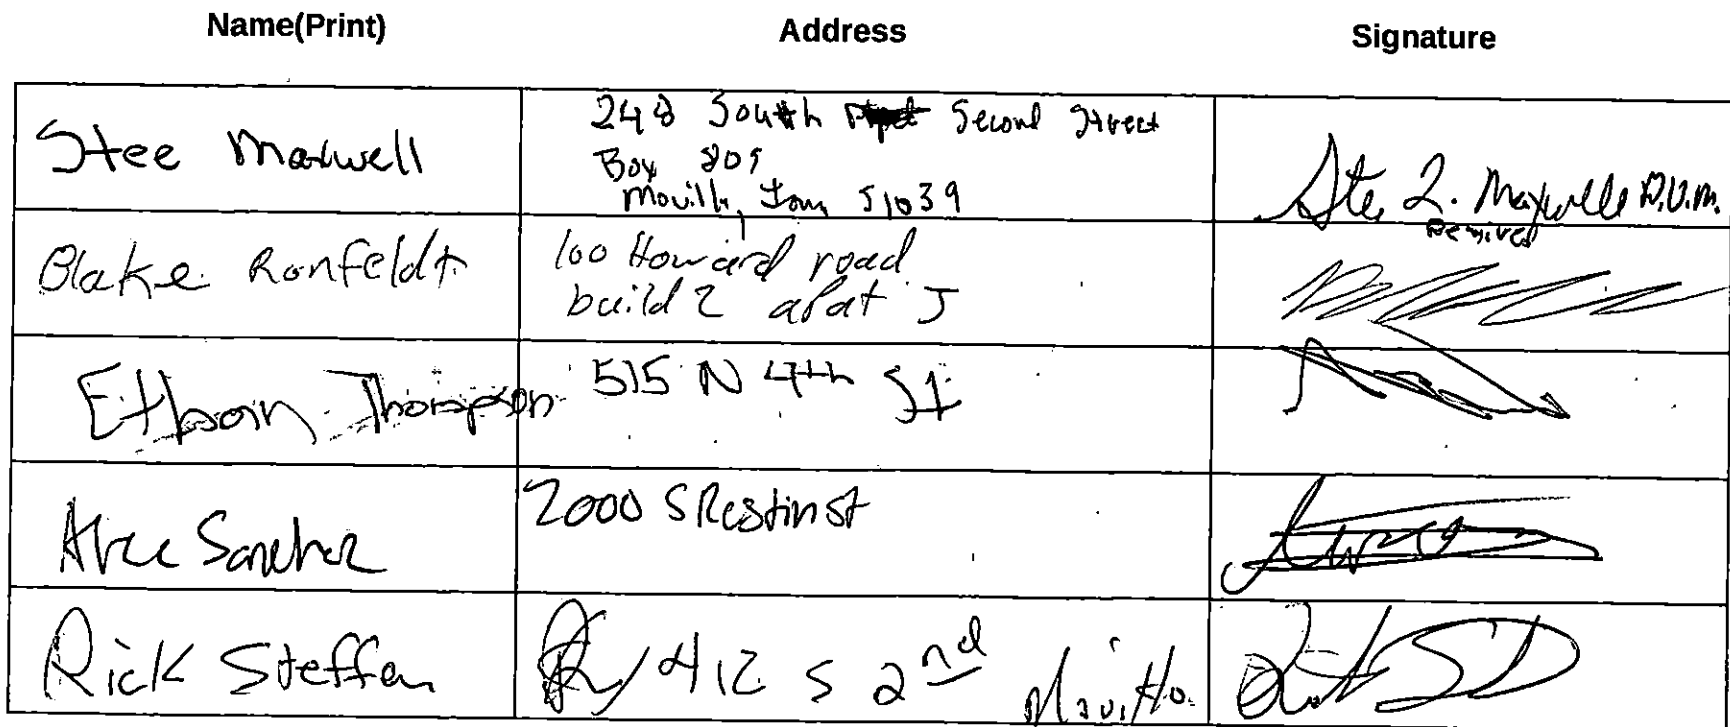 Name(Print) Address Signature
Stee Maxwell
248 South Second Street
Box 809
Moville, Iowa 51039
Ste 2. Maxwell D.V.M.
Retired
Blake Ronfeldt
100 Howard road
build 2 apat J
Ethan Thompson
515 N 4th St
2000 S
Rick Steffen
412 S 2nd Moville